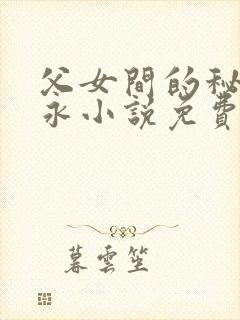 父女間的秘
永小說免費
暮雲笙